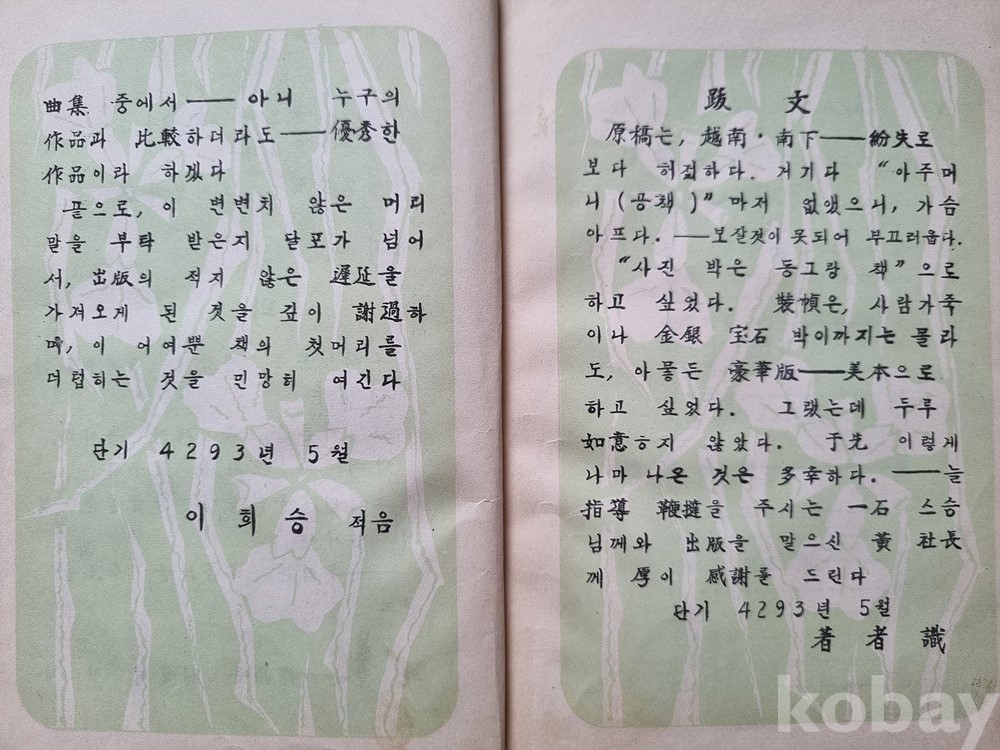 曲集 중에서 —— 아니 누구의
作品과 比較하더라도 —— 優秀한
作品이라 하겠다
끝으로, 이 변변치 않은 머리
말을 부탁 받은지 달포가 넘어
서, 出版의 적지 않은 遲延을
가져오게 된 것을 깊이 謝過하
며, 이 어여쁜 책의 첫머리를
더럽히는 것을 민망히 여긴다
단기 4293년 5월
이 희 승 적음
跋 文
原稿는, 越南·南下 —— 紛失로
보다 허접하다. 거기다 “아주머
니(공책)” 마저 없앴으니, 가슴
아프다. —— 보잘것이 못되어 부끄러웁다.
“사진 박은 동그랑 책”으로
하고 싶었다. 裝幀은, 사람가죽
이나 金銀 宝石 박이까지는 몰라
도, 아뭏든 豪華版 —— 美本으로
하고 싶었다. 그랬는데 두루
如意ㅎ지 않았다. 于先 이렇게
나마 나온 것은 多幸하다. —— 늘
指導 鞭撻을 주시는 一石 스승
님께와 出版을 맡으신 黃 社長
께 厚이 感謝를 드린다
단기 4293년 5월
著 者 識
kobay